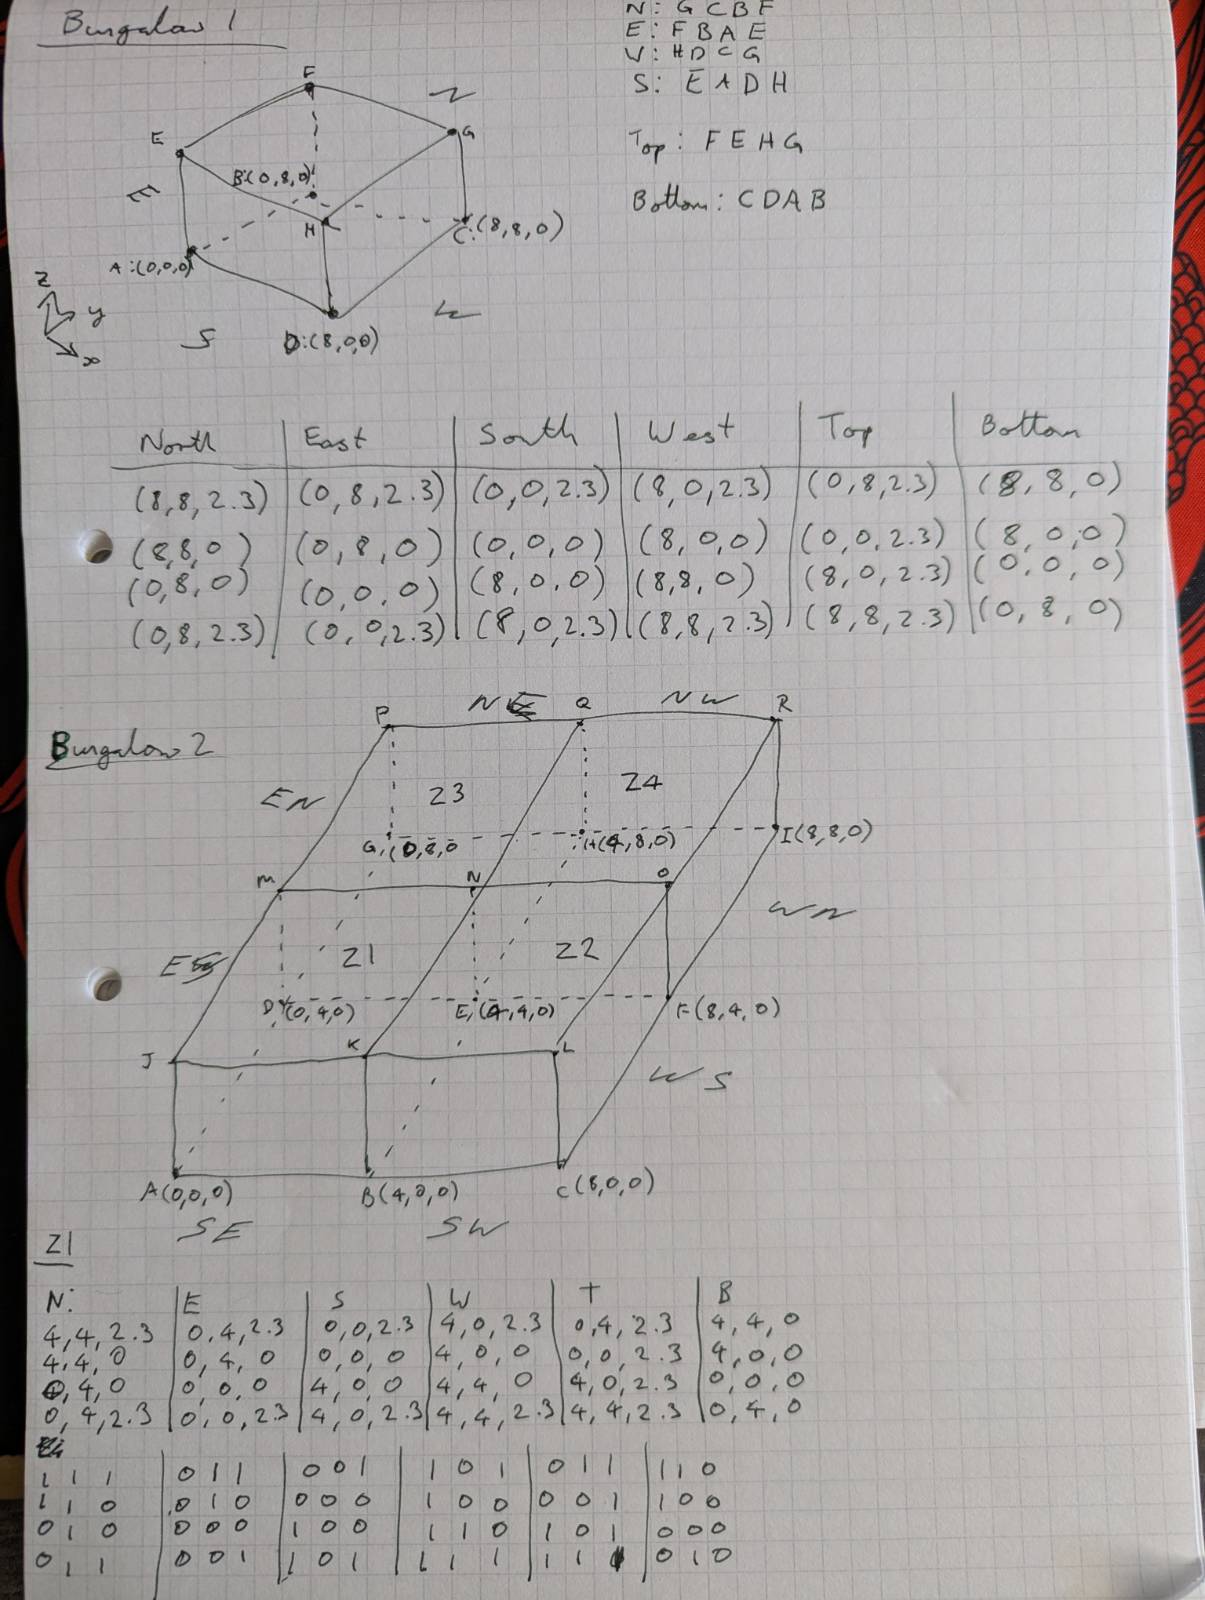 Bungalow 1
N: G C B F
E: F B A E
W: H D C G
S: E A D H
Top: F E H G
Bottom: C D A B
F
N
G
E
B:(0,8,0)
E
H
C:(8,8,0)
A:(0,0,0)
z
y
x
S
W
D:(8,0,0)
North East South West Top Bottom
(8,8,2.3) (0,8,2.3) (0,0,2.3) (8,0,2.3) (0,8,2.3) (8,8,0)
(8,8,0) (0,8,0) (0,0,0) (8,0,0) (0,0,2.3) (8,0,0)
(0,8,0) (0,0,0) (8,0,0) (8,8,0) (8,0,2.3) (0,0,0)
(0,8,2.3) (0,0,2.3) (8,0,2.3) (8,8,2.3) (8,8,2.3) (0,8,0)
Bungalow 2
P NE Q NW R
EN Z3 Z4
G,(0,8,0 H(4,8,0) I(8,8,0)
M N O
WN
ES Z1 Z2
D (0,4,0) E,(4,4,0) F(8,4,0)
J K L
WS
A(0,0,0) B(4,0,0) C(8,0,0)
SE SW
Z1
N: E S W T B
4,4,2.3 0,4,2.3 0,0,2.3 4,0,2.3 0,4,2.3 4,4,0
4,4,0 0,4,0 0,0,0 4,0,0 0,0,2.3 4,0,0
0,4,0 0,0,0 4,0,0 4,4,0 4,0,2.3 0,0,0
0,4,2.3 0,0,2.3 4,0,2.3 4,4,2.3 4,4,2.3 0,4,0
1 1 1 0 1 1 0 0 1 1 0 1 0 1 1 1 1 0
1 1 0 0 1 0 0 0 0 1 0 0 0 0 1 1 0 0
0 1 0 0 0 0 1 0 0 1 1 0 1 0 1 0 0 0
0 1 1 0 0 1 1 0 1 1 1 1 1 1 1 0 1 0